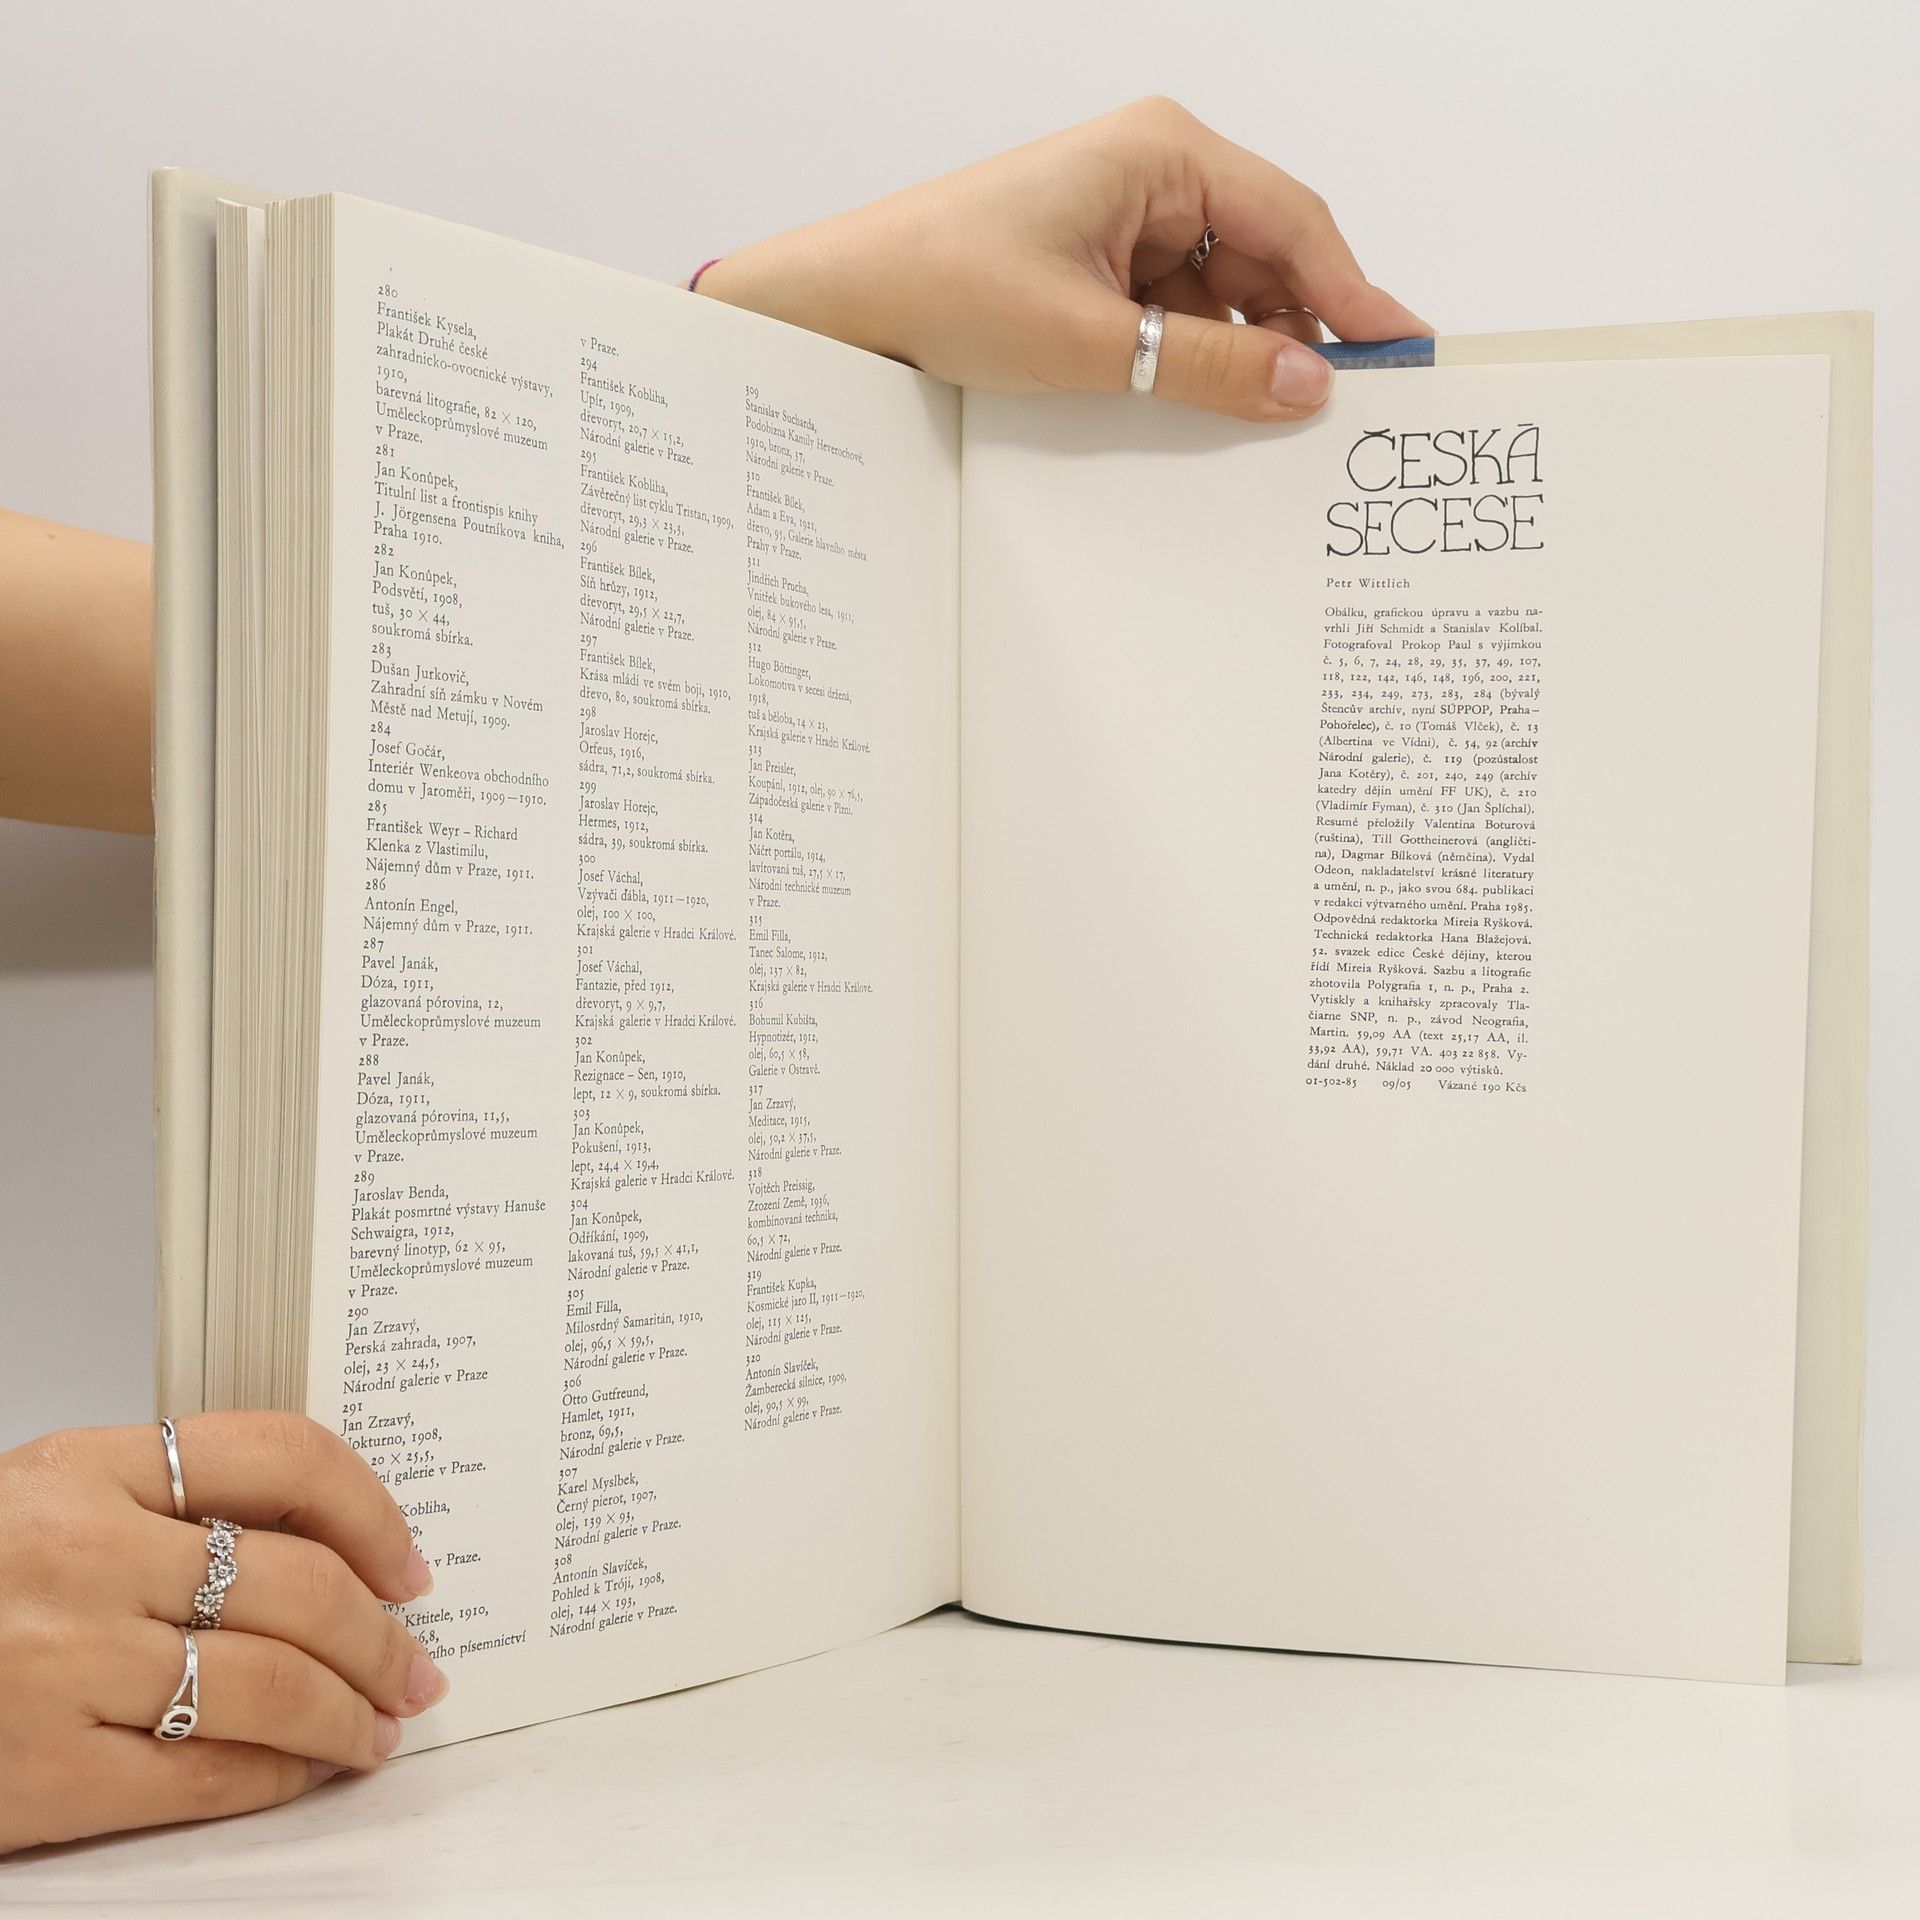 280
František Kysela,
Plakát Druhé české
zahradnicko-ovocnické výstavy,
1910,
barevná litografie, 82 × 120,
Uměleckoprůmyslové muzeum
v Praze.
281
Jan Konůpek,
Titulní list a frontispis knihy
J. Jörgensena Poutníkova kniha,
Praha 1910.
282
Jan Konůpek,
Podsvětí, 1908,
tuš, 30 × 44,
soukromá sbírka.
283
Dušan Jurkovič,
Zahradní síň zámku v Novém
Městě nad Metují, 1909.
284
Josef Gočár,
Interiér Wenkeova obchodního
domu v Jaroměři, 1909–1910.
285
František Weyr – Richard
Klenka z Vlastimilu,
Nájemný dům v Praze, 1911.
286
Antonín Engel,
Nájemný dům v Praze, 1911.
287
Pavel Janák,
Dóza, 1911,
glazovaná pórovina, 12,
Uměleckoprůmyslové muzeum
v Praze.
288
Pavel Janák,
Dóza, 1911,
glazovaná pórovina, 11,5,
Uměleckoprůmyslové muzeum
v Praze.
289
Jaroslav Benda,
Plakát posmrtné výstavy Hanuše
Schwaigra, 1912,
barevný linotyp, 62 × 95,
Uměleckoprůmyslové muzeum
v Praze.
290
Jan Zrzavý,
Perská zahrada, 1907,
olej, 23 × 24,5,
Národní galerie v Praze
291
Jan Zrzavý,
Nokturno, 1908,
20 × 25,5,
galerie v Praze.
Kobliha,
v Praze.
Křtitele, 1910,
písemnictví
v Praze.
294
František Kobliha,
Upír, 1909,
dřevoryt, 20,7 × 15,2,
Národní galerie v Praze.
295
František Kobliha,
Závěrečný list cyklu Tristan, 1909,
dřevoryt, 29,3 × 23,3,
Národní galerie v Praze.
296
František Bílek,
Síň hrůzy, 1912,
dřevoryt, 29,5 × 22,7,
Národní galerie v Praze.
297
František Bílek,
Krása mládí ve svém boji, 1910,
dřevo, 80, soukromá sbírka.
298
Jaroslav Horejc,
Orfeus, 1916,
sádra, 71,2, soukromá sbírka.
299
Jaroslav Horejc,
Hermes, 1912,
sádra, 39, soukromá sbírka.
300
Josef Váchal,
Vzývači ďábla, 1911–1920,
olej, 100 × 100,
Krajská galerie v Hradci Králové.
301
Josef Váchal,
Fantazie, před 1912,
dřevoryt, 9 × 9,7,
Krajská galerie v Hradci Králové.
302
Jan Konůpek,
Rezignace – Sen, 1910,
lept, 12 × 9, soukromá sbírka.
303
Jan Konůpek,
Pokušení, 1913,
lept, 24,4 × 19,4,
Krajská galerie v Hradci Králové.
304
Jan Konůpek,
Odříkání, 1909,
lakovaná tuš, 59,5 × 41,1,
Národní galerie v Praze.
305
Emil Filla,
Milosrdný Samaritán, 1910,
olej, 96,5 × 59,5,
Národní galerie v Praze.
306
Otto Gutfreund,
Hamlet, 1911,
bronz, 69,5,
Národní galerie v Praze.
307
Karel Myslbek,
Černý pierot, 1907,
olej, 139 × 93,
Národní galerie v Praze.
308
Antonín Slavíček,
Pohled k Tróji, 1908,
olej, 144 × 193,
Národní galerie v Praze.
309
Stanislav Sucharda,
Podobizna Kamily Heverochové,
1910, bronz, 37,
Národní galerie v Praze.
310
František Bílek,
Adam a Eva, 1921,
dřevo, 95, Galerie hlavního města
Prahy v Praze.
311
Jindřich Prucha,
Vnitřek bukového lesa, 1911,
olej, 84 × 95,5,
Národní galerie v Praze.
312
Hugo Böttinger,
Lokomotiva v secesi držená,
1918,
tuš a běloba, 14 × 23,
Krajská galerie v Hradci Králové.
313
Jan Preisler,
Koupání, 1912, olej, 90 × 76,5,
Západočeská galerie v Plzni.
314
Jan Kotěra,
Náčrt portálu, 1914,
lavírovaná tuš, 27,5 × 17,
Národní technické muzeum
v Praze.
315
Emil Filla,
Tanec Salome, 1912,
olej, 137 × 82,
Krajská galerie v Hradci Králové.
316
Bohumil Kubišta,
Hypnotizér, 1912,
olej, 60,5 × 58,
Galerie v Ostravě.
317
Jan Zrzavý,
Meditace, 1915,
olej, 50,2 × 37,5,
Národní galerie v Praze.
318
Vojtěch Preissig,
Zrození Země, 1936,
kombinovaná technika,
60,5 × 72,
Národní galerie v Praze.
319
František Kupka,
Kosmické jaro II, 1911–1920,
olej, 115 × 125,
Národní galerie v Praze.
320
Antonín Slavíček,
Žamberecká silnice, 1909,
olej, 90,5 × 99,
Národní galerie v Praze.
ČESKÁ
SECESE
Petr Wittlich
Obálku, grafickou úpravu a vazbu na-
vrhli Jiří Schmidt a Stanislav Kolíbal.
Fotografoval Prokop Paul s výjimkou
č. 5, 6, 7, 24, 28, 29, 35, 37, 49, 107,
118, 122, 142, 146, 148, 196, 200, 221,
233, 234, 249, 273, 283, 284 (bývalý
Štencův archív, nyní SÚPPOP, Praha–
Pohořelec), č. 10 (Tomáš Vlček), č. 13
(Albertina ve Vídni), č. 54, 92 (archív
Národní galerie), č. 119 (pozůstalost
Jana Kotěry), č. 201, 240, 249 (archív
katedry dějin umění FF UK), č. 210
(Vladimír Fyman), č. 310 (Jan Šplíchal).
Resumé přeložily Valentina Boturová
(ruština), Till Gottheinerová (angličti-
na), Dagmar Bílková (němčina). Vydal
Odeon, nakladatelství krásné literatury
a umění, n. p., jako svou 684. publikaci
v redakci výtvarného umění. Praha 1985.
Odpovědná redaktorka Mireia Ryšková.
Technická redaktorka Hana Blažejová.
52. svazek edice České dějiny, kterou
řídí Mireia Ryšková. Sazbu a litografie
zhotovila Polygrafia 1, n. p., Praha 2.
Vytiskly a knihařsky zpracovaly Tla-
čiarne SNP, n. p., závod Neografia,
Martin. 59,09 AA (text 25,17 AA, il.
33,92 AA), 59,71 VA. 403 22 858. Vy-
dání druhé. Náklad 20 000 výtisků.
01-502-85 09/05 Vázané 190 Kčs